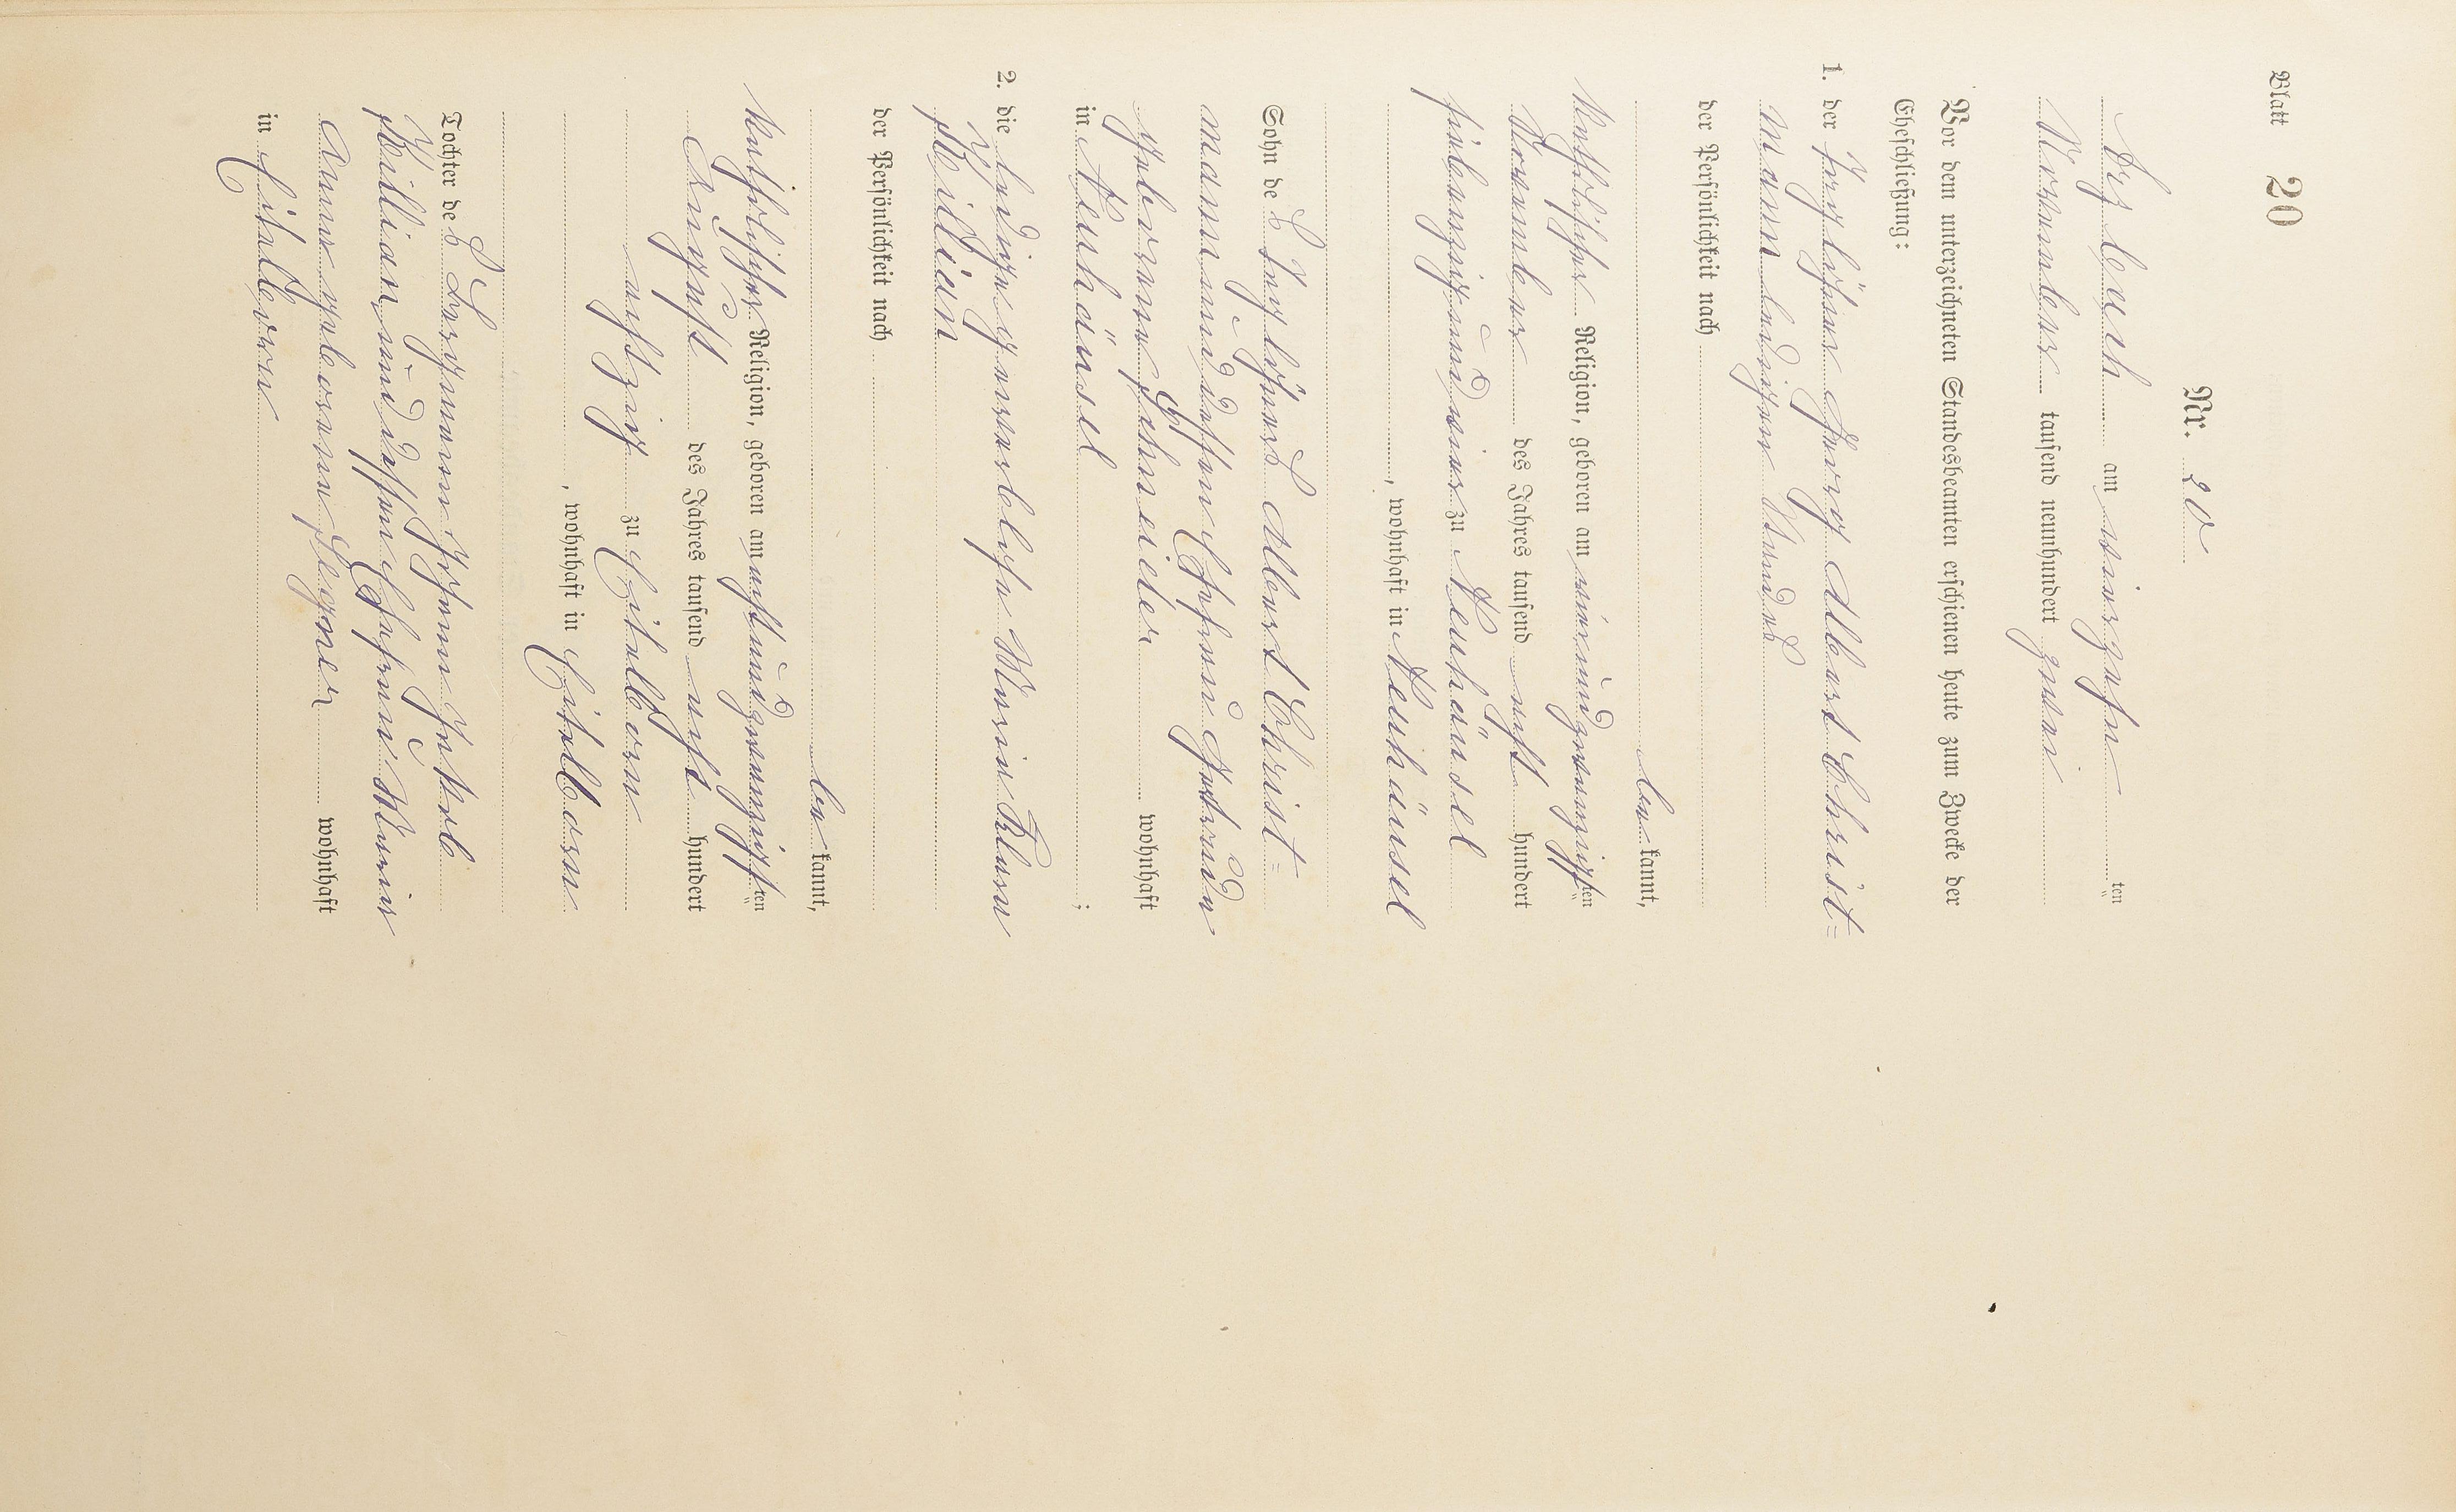 Blatt 20
Nr. 20
Arzbach am vierzehn ten
November tausend neunhundert zwei
Vor dem unterzeichneten Standesbeamten erschienen heute zum Zwecke der
Eheschließung:
1. der Taglöhner Georg Albert Christ=
mann ledigen Standes
der Persönlichkeit nach
be kannt,
katholischer Religion, geboren am vierundzwanzigsten
November des Jahres tausend acht hundert
siebenzig und vier zu Neuhäusel
, wohnhaft in Neuhäusel
Sohn des Taglöhners Albert Christ=
mann und dessen Ehefrau Gertrude
geborene Schneider wohnhaft
in Neuhäusel ;
2. die ledige gewerblose Maria Klara
Killian
der Persönlichkeit nach
be kannt,
katholischer Religion, geboren am achtundzwanzigsten
August des Jahres tausend acht hundert
achtzig zu Eitelborn
, wohnhaft in Eitelborn
Tochter des Bergmann Johann Jakob
Killian und dessen Ehefrau Maria
Anna geborene wohnhaft
in Eitelborn